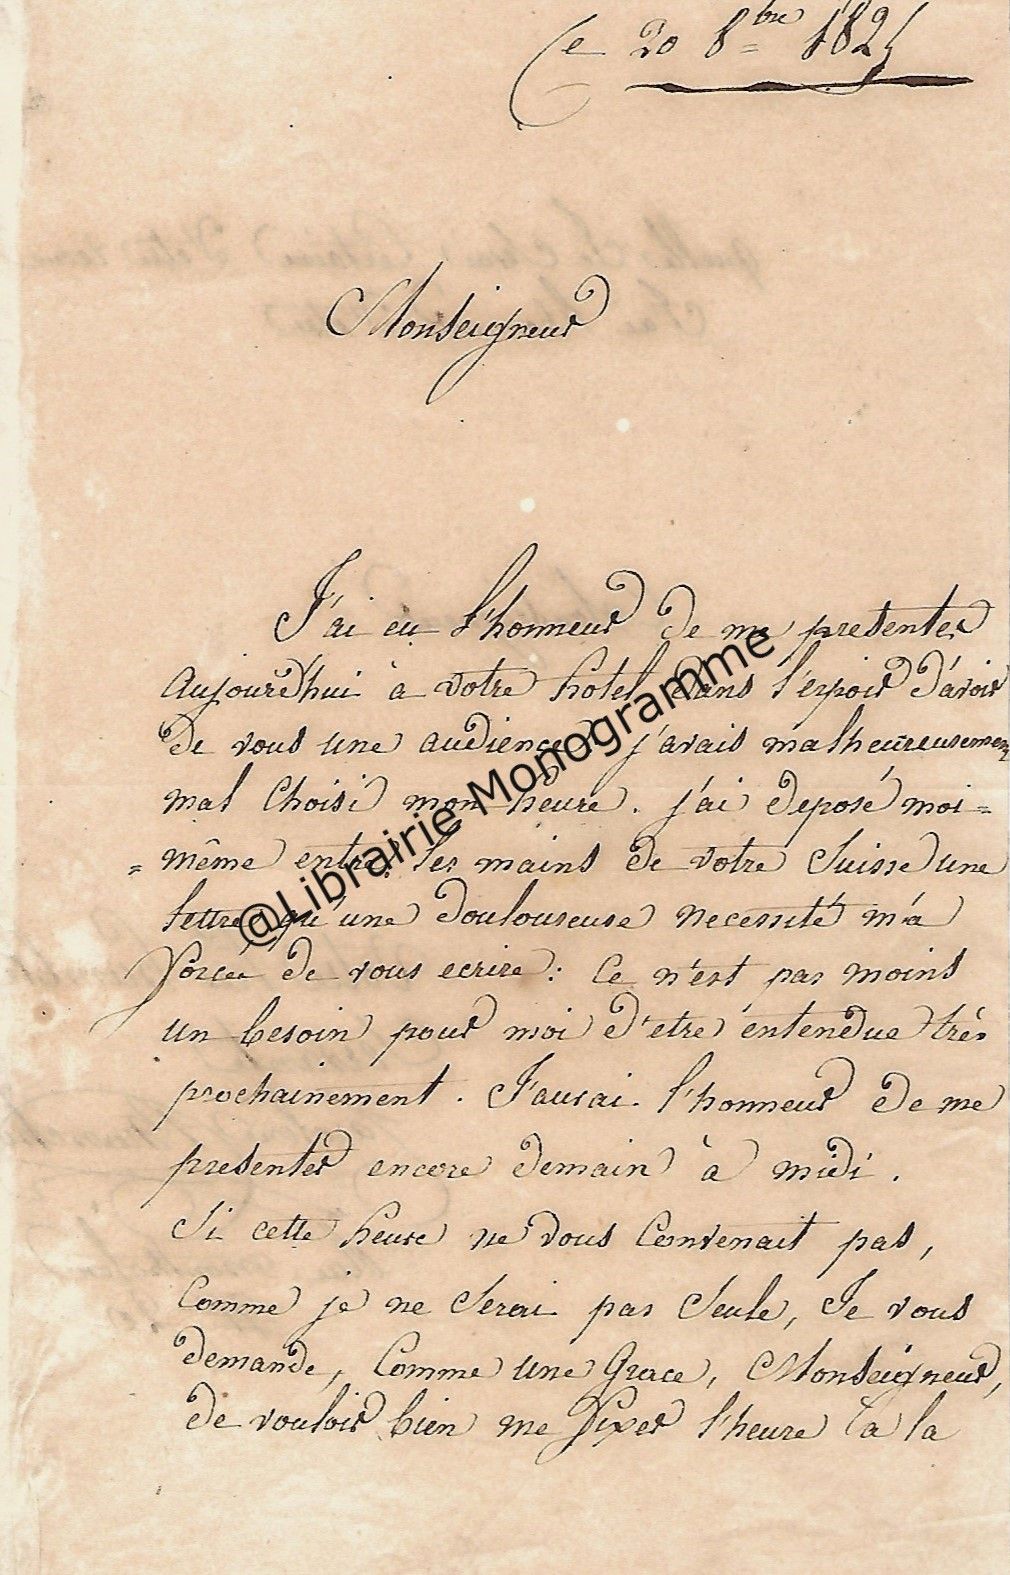 Ce 20 8bre 1825
Monseigneur
J'ai eu l'honneur de me presenter
aujourd'hui à votre hotel dans l'espoir d'avoir
de vous une audience, j'avais malheureusement
mal choisi mon heure. j'ai deposé moi=
=même entre les mains de votre Suisse une
lettre qu'une douloureuse necessité m'a
forcée de vous ecrire: Ce n'est pas moins
un besoin pour moi d'etre entendue très
prochainement. J'aurai l'honneur de me
presenter encore demain à midi.
Si cette heure ne vous Convenait pas,
Comme je ne Serai pas Seule, Je vous
demande, Comme une Grace, Monseigneur,
de vouloir bien me fixer l'heure à la
@Librairie Monogramme